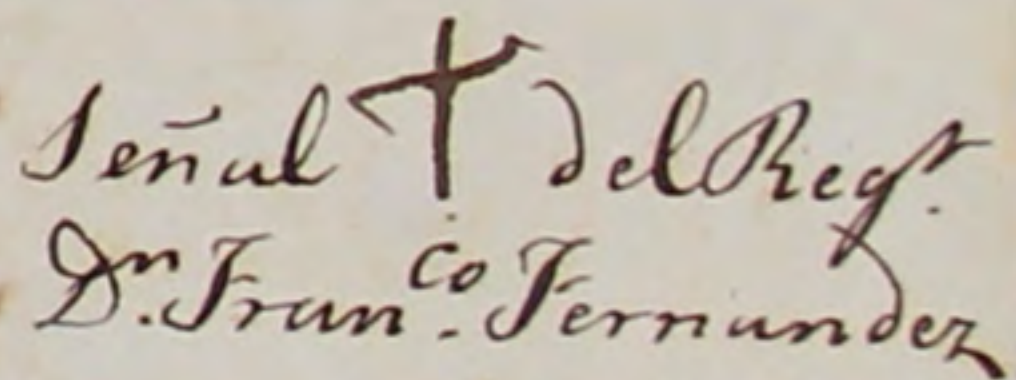 Señal + del Regr.
Dn. Franco. Fernandez